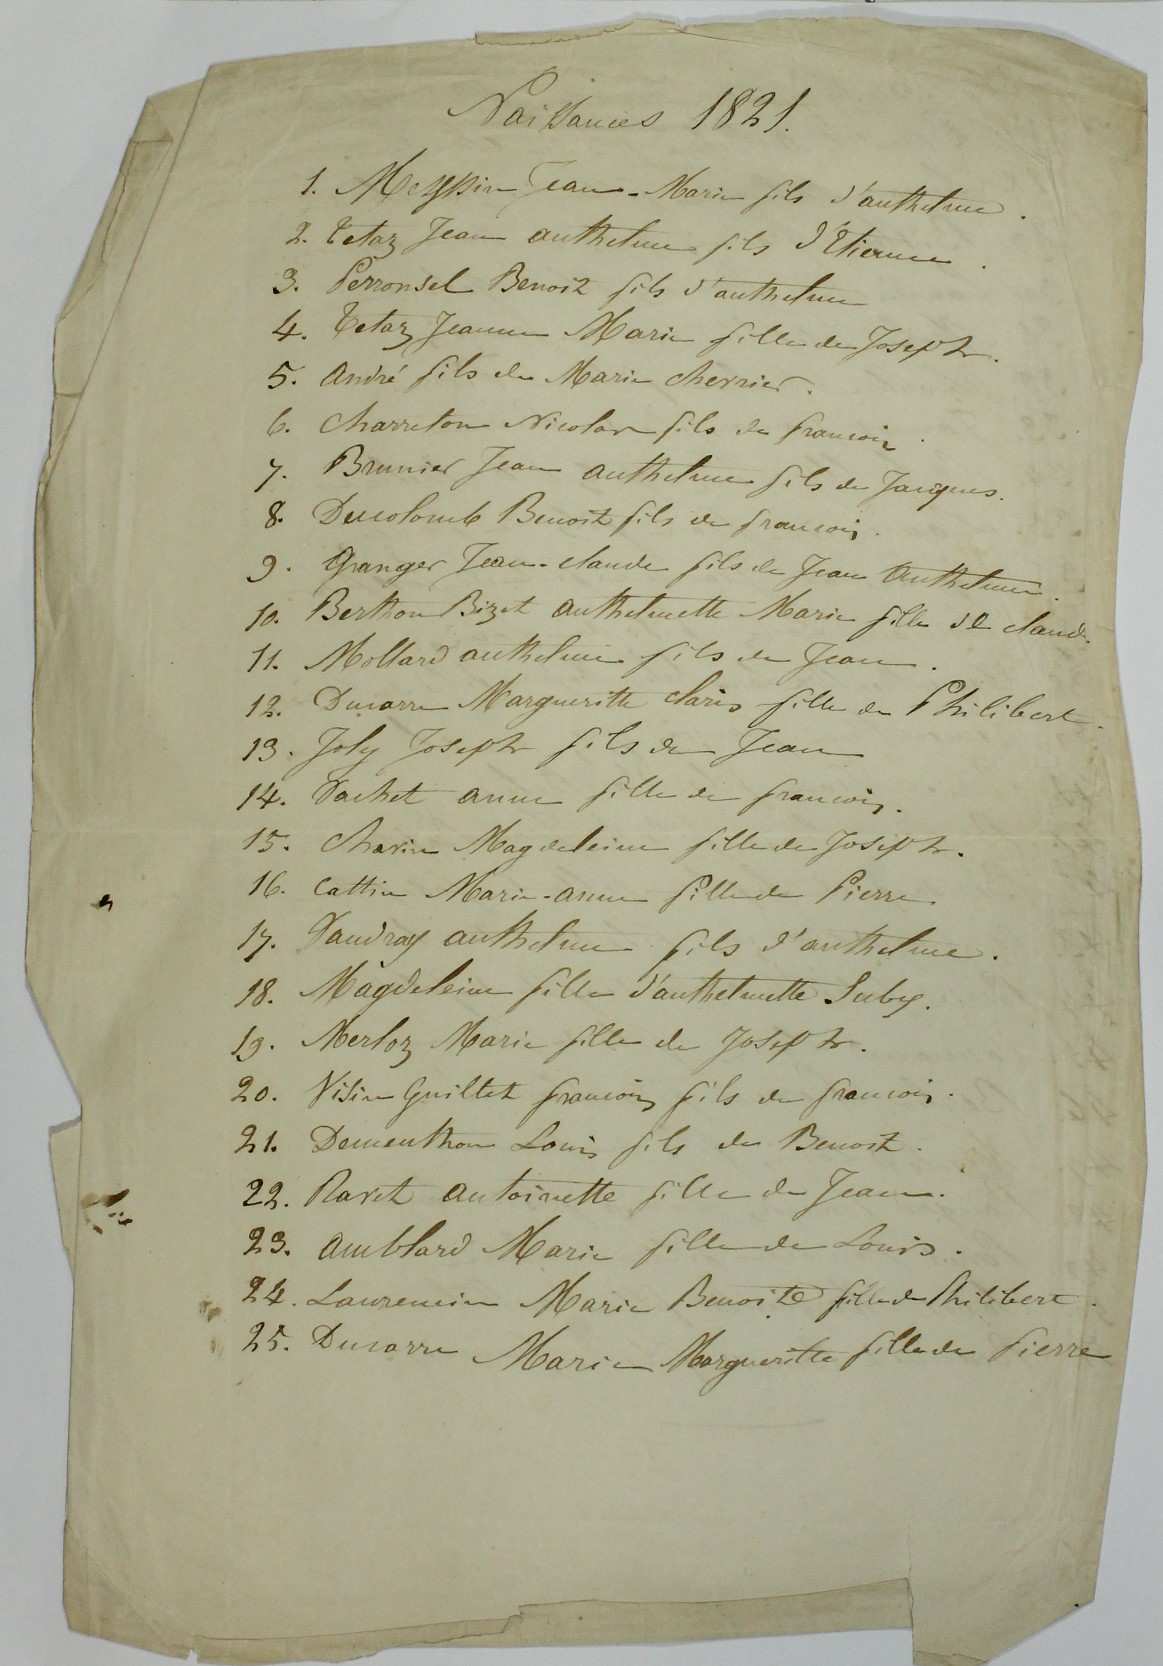 Naissances 1821.
1. Meyssin Jean-Marie fils d'anthelme.
2. Tetaz Jean anthelme fils d'Etienne.
3. Perronsel Benoit fils d'anthelme
4. Tetaz Jeanne Marie fille de Joseph.
5. André fils de Marie cherrier.
6. Charreton Nicolas fils de francois
7. Brunier Jean anthelme fils de Jacques.
8. Ducolomb Benoit fils de francois.
9. Granger Jean-claude fils de Jean Anthelme.
10. Berthon Bizet anthelmette Marie fille de claude.
11. Mollard anthelme fils de Jean.
12. Ducarre Margueritte claris fille de Philibert.
13. Joly Joseph fils de Jean
14. Pachet anne fille de francois.
15. Charin Magdeleine fille de Joseph.
16. Cattin Marie-anne fille de Pierre.
17. anthelme fils d'anthelme.
18. Magdeleine fille d'anthelmette Suby.
19. Merloz Marie fille de Joseph.
20. Visin Guillet francois fils de francois.
21. Dementhon Louis fils de Benoit.
22. Ravet antoinette fille de Jean.
23. Amblard Marie fille de Louis.
24. Laurencin Marie Benoite fille de Philibert.
25. Ducarre Marie Margueritte fille de Pierre